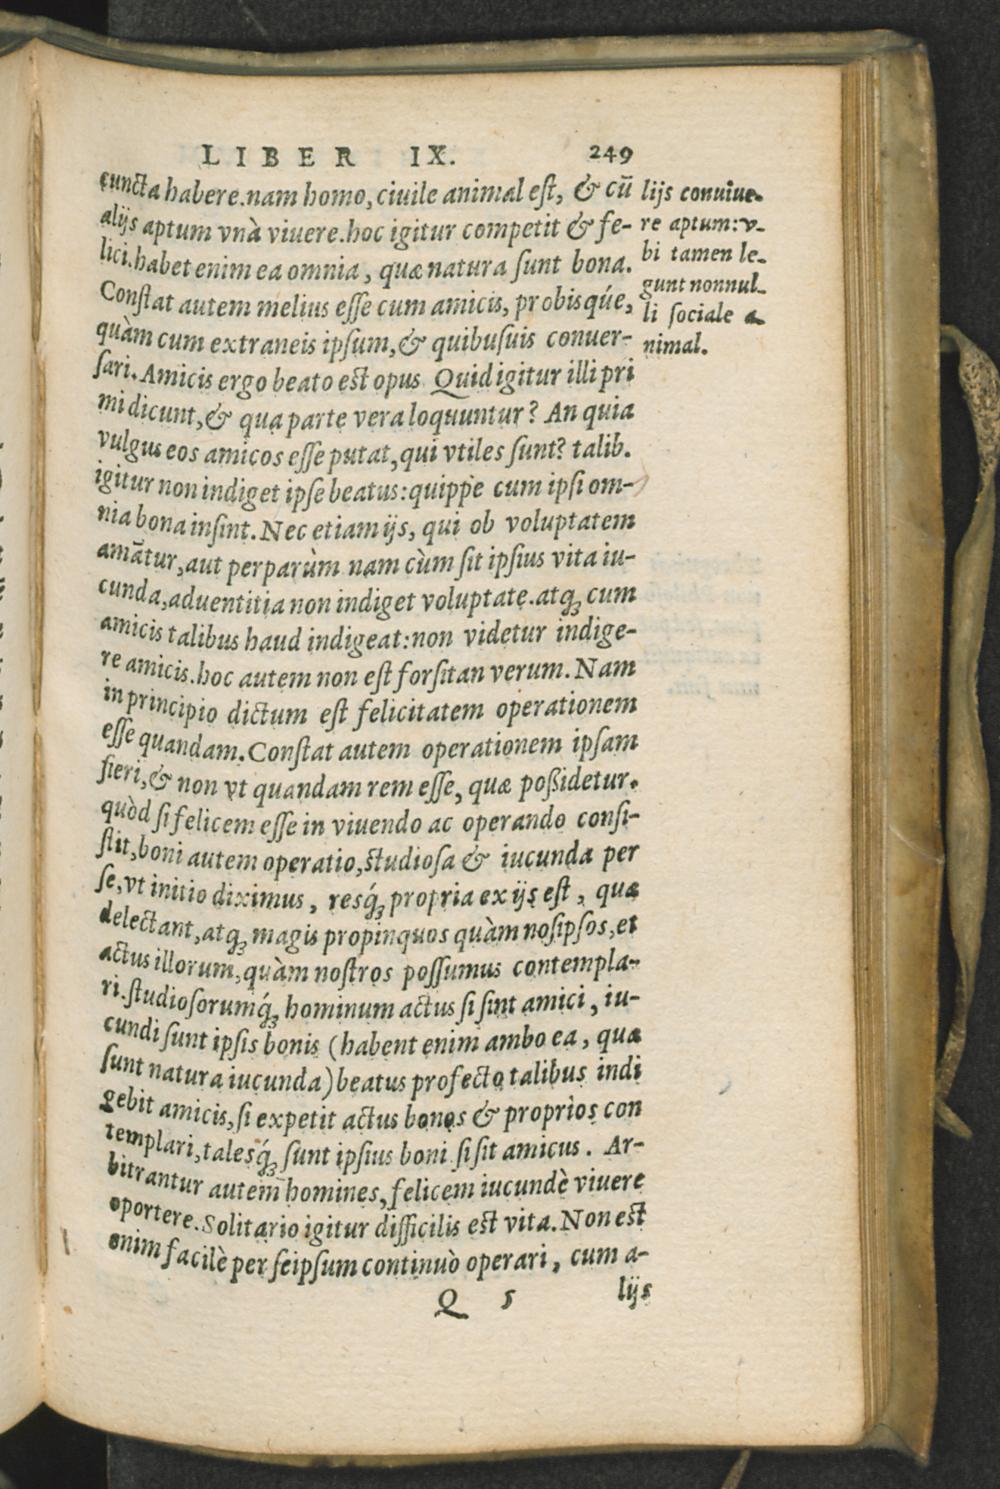 LIBER IX. 249
cuncta habere. nam homo, ciuile animal est, & cū
alijs aptum vnà viuere. hoc igitur competit & fe-
lici. habet enim ea omnia, quæ natura sunt bona.
Constat autem melius esse cum amicis, probisqúe,
quàm cum extraneis ipsum, & quibusuis conuer-
sari. Amicis ergo beato est opus Quid igitur illi pri
mi dicunt, & qua parte vera loquuntur? An quia
vulgus eos amicos esse putat, qui vtiles sunt? talib.
igitur non indiget ipse beatus: quippe cum ipsi om-
nia bona insint. Nec etiam ijs, qui ob voluptatem
amātur, aut perparùm nam cùm sit ipsius vita iu-
cunda, aduentitia non indiget voluptate. atq; cum
amicis talibus haud indigeat: non videtur indige-
re amicis. hoc autem non est forsitan verum. Nam
in principio dictum est felicitatem operationem
esse quandam. Constat autem operationem ipsam
fieri, & non vt quandam rem esse, quæ poßidetur.
quòd si felicem esse in viuendo ac operando consi-
stit, boni autem operatio, studiosa & iucunda per
se, vt initio diximus, resq́; propria ex ijs est, quæ
delectant, atq; magis propinquos quàm nosipsos, et
actus illorum, quàm nostros possumus contempla-
ri. studiosorumq́; hominum actus si sint amici, iu-
cundi sunt ipsis bonis (habent enim ambo ea, quæ
sunt natura iucunda) beatus profecto talibus indi
gebit amicis, si expetit actus bonos & proprios con
templari, talesq́; sunt ipsius boni si sit amicus. Ar-
bitrantur autem homines, felicem iucundè viuere
oportere. Solitario igitur difficilis est vita. Non est
enim facilè per seipsum continuò operari, cum a-
Q 5 lijs
lijs conuiue-
re aptum: v-
bi tamen le-
gunt nonnul-
li sociale a-
nimal.